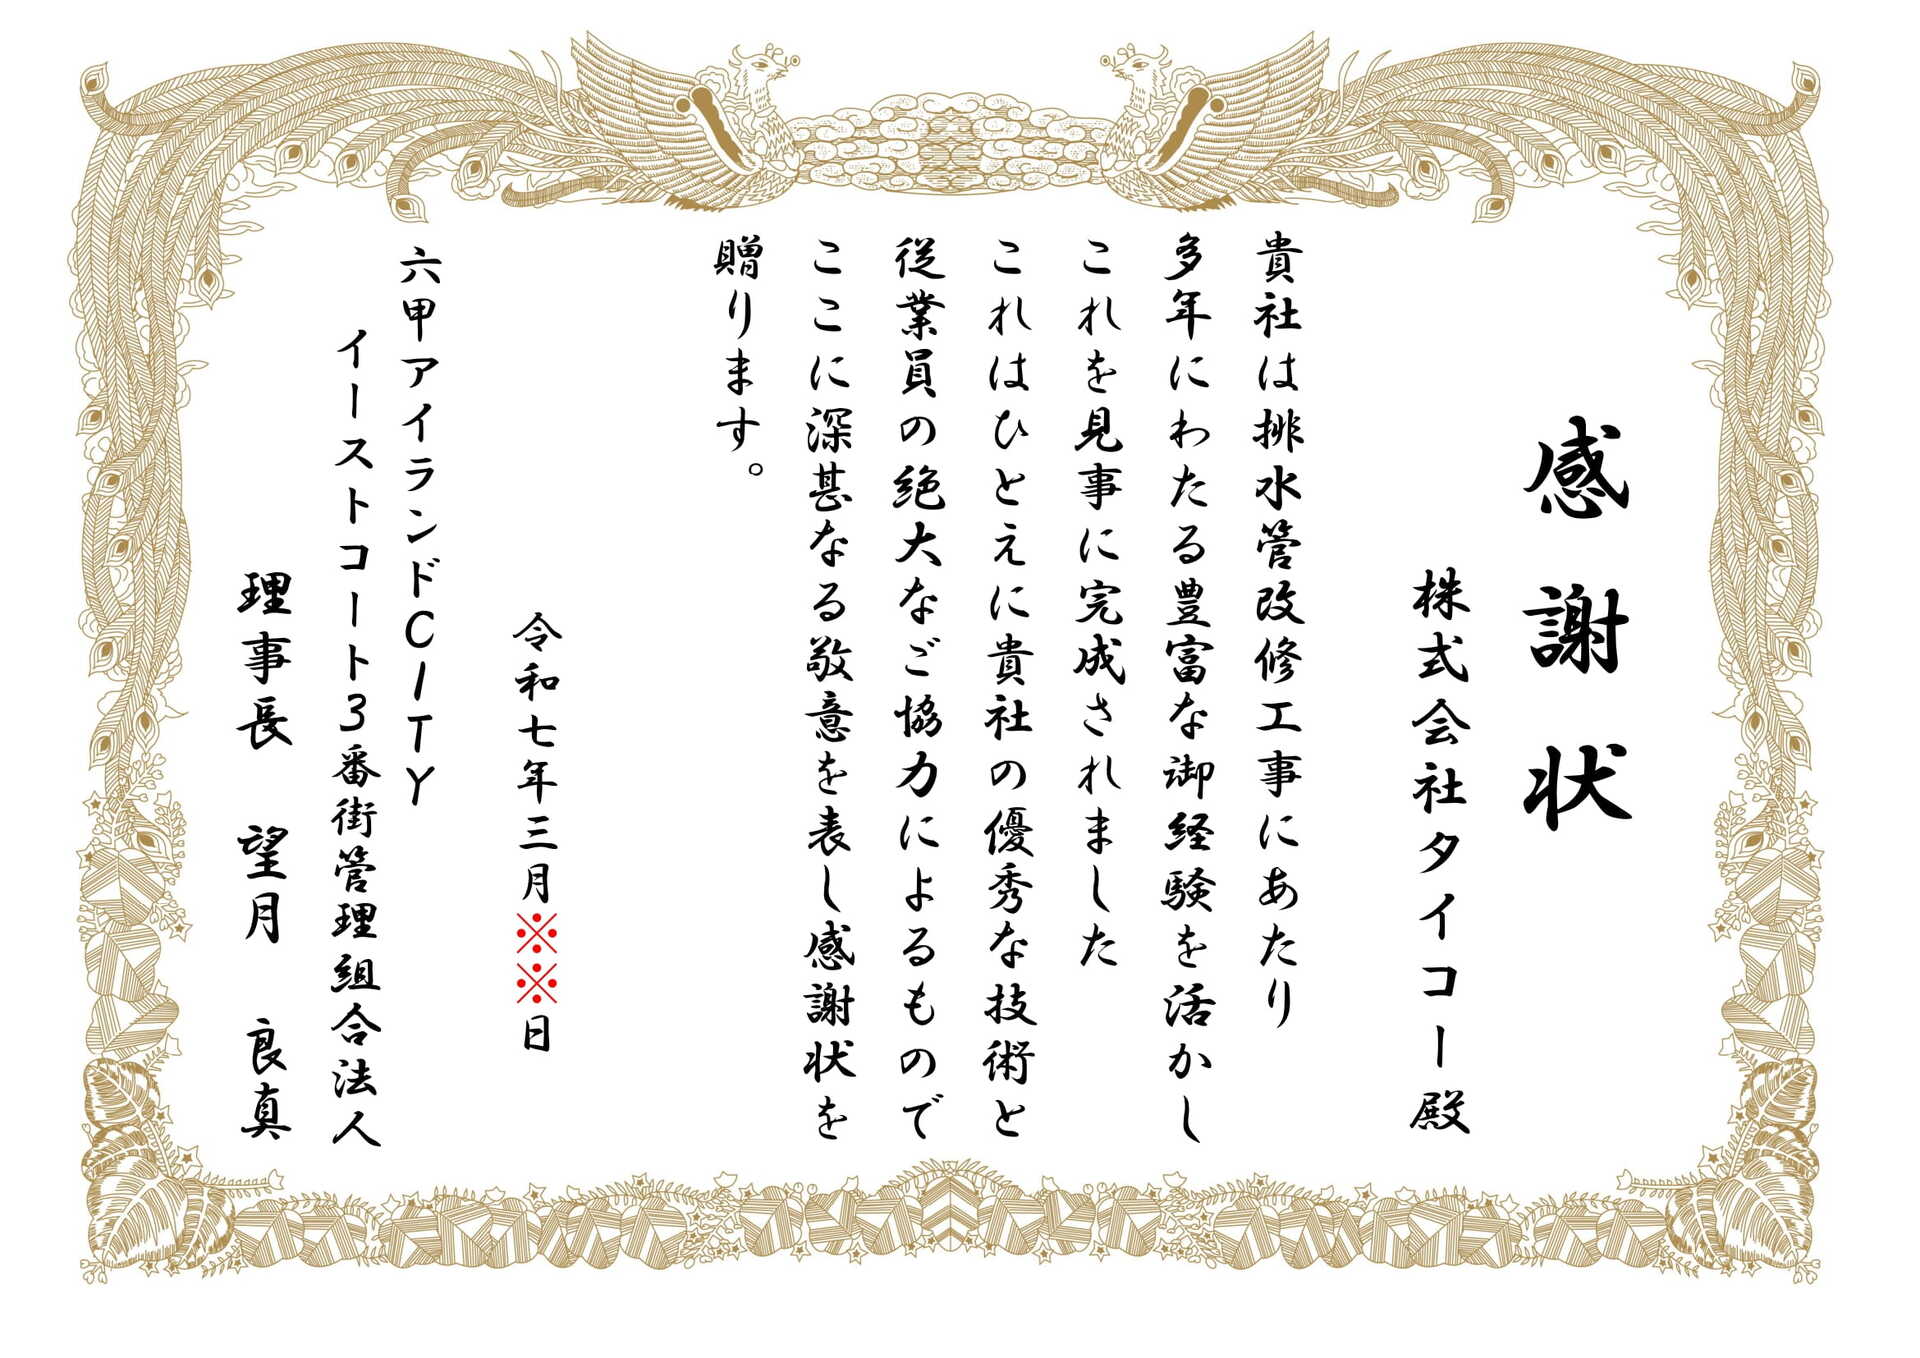 感謝状
株式会社タイコー殿
貴社は排水管改修工事にあたり
多年にわたる豊富な御経験を活かし
これを見事に完成されました
これはひとえに貴社の優秀な技術と
従業員の絶大なご協力によるもので
ここに深甚なる敬意を表し感謝状を
贈ります。
令和七年三月※※日
六甲アイランドCITY
イーストコート3番街管理組合法人
理事長 望月 良真